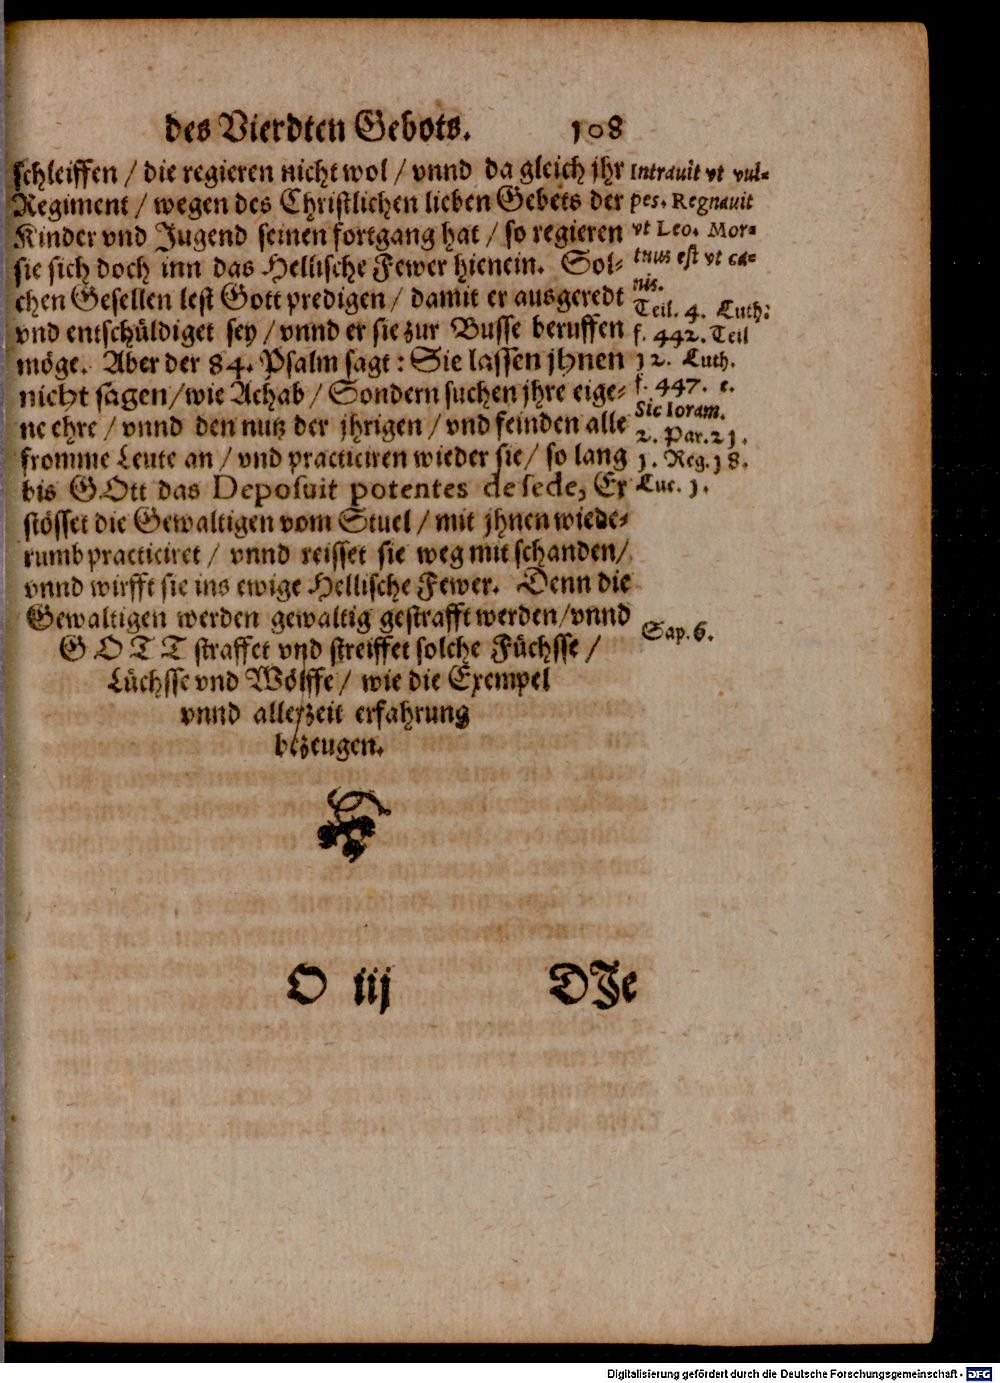 des Vierdten Gebots. 108
schleiffen / die regieren nicht wol / vnnd da gleich jhr
Regiment / wegen des Christlichen lieben Gebets der
Kinder vnd Jugend seinen fortgang hat / so regieren
sie sich doch inn das Hellische Fewer hienein. Sol-
chen Gesellen lest Gott predigen / damit er ausgeredt
vnd entschüldiget sey / vnnd er sie zur Busse beruffen
möge. Aber der 84. Psalm sagt : Sie lassen jhnen
nicht sagen / wie Achab / Sondern suchen jhre eige-
ne ehre / vnnd den nutz der jhrigen / vnd feinden alle
fromme Leute an / vnd practiciren wieder sie / so lang
bis GOtt das Deposuit potentes de sede, Er
stösset die Gewaltigen vom Stuel / mit jhnen wiede-
rumb practiciret / vnnd reisset sie weg mit schanden /
vnnd wirfft sie ins ewige Hellische Fewer. Denn die
Gewaltigen werden gewaltig gestrafft werden / vnnd
GOTT straffet vnd streiffet solche Füchsse /
Lüchsse vnd Wölffe / wie die Exempel
vnnd allezeit erfahrung
bezeugen.
Intrauit vt vul-
pes. Regnauit
vt Leo. Mor-
tuus est vt ca-
nis.
Teil. 4. Luth:
f. 442. Teil
12. Luth.
f. 447. e.
Sic Ioram.
2. Par. 21.
1. Reg. 18.
Luc. 1.
Sap. 6.
O iij DJe
Digitalisierung gefördert durch die Deutsche Forschungsgemeinschaft - DFG